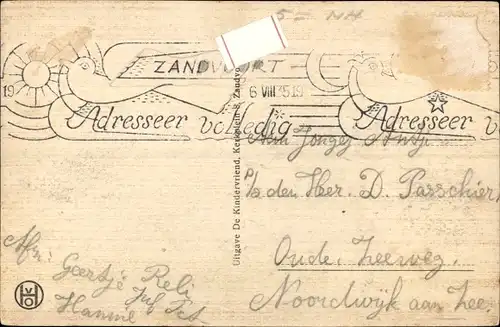 5- NH
ZANDVOORT
19 6 VIII 35.19
Adresseer volledig Adresseer
Uitgave De Kindervriend, Zandvoort
Aan Jonger
p/a den Heer. D. Parschier
Oude. Zeeweg.
Noordwijk aan Zee.
Afz.
Geertje
Hanne
HVO